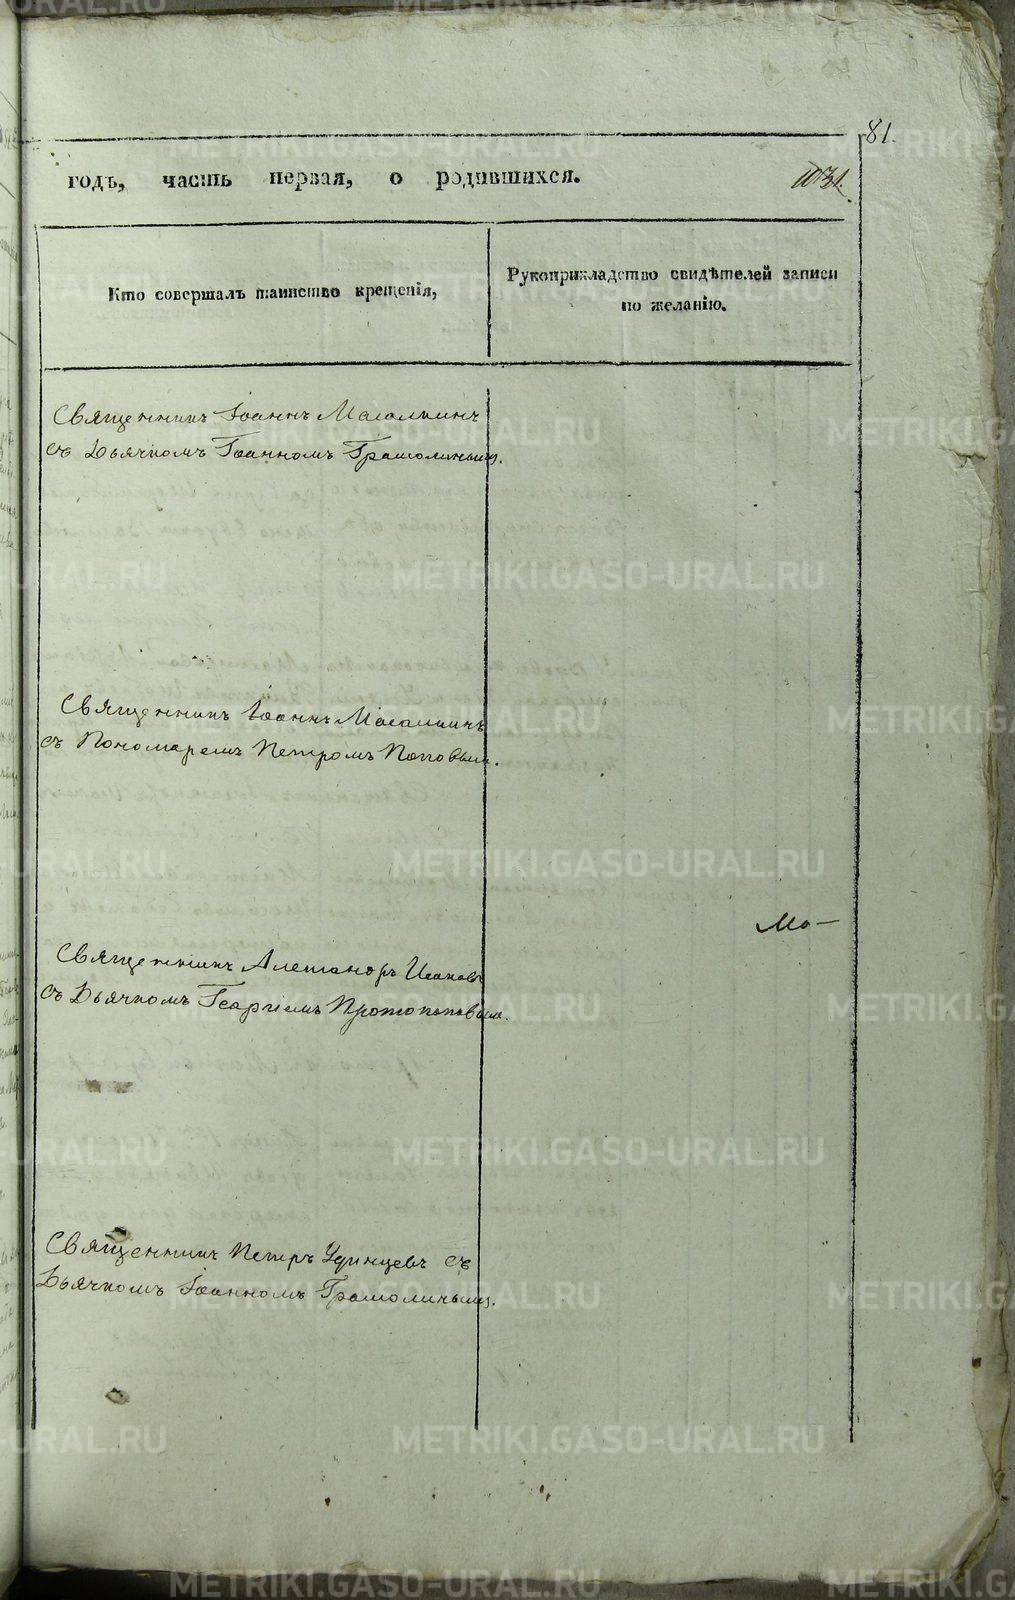 81.
годъ, часть первая, о родившихся.
Кто совершалъ таинство крещенія,
Рукоприкладство свидѣтелей записи
по желанію.
Священникъ Іоаннъ Масалкинъ
съ Дьячкомъ Іоанномъ Грамолинымъ.
Священникъ Іоаннъ Масалкинъ
съ Пономаремъ Петромъ Поповымъ.
Мо—
Священникъ Александръ Исаковъ
съ Дьячкомъ Георгіемъ Протопоповымъ.
Священникъ Петръ Удинцевъ съ
Дьячкомъ Іоанномъ Грамолинымъ.
METRIKI.GASO-URAL.RU